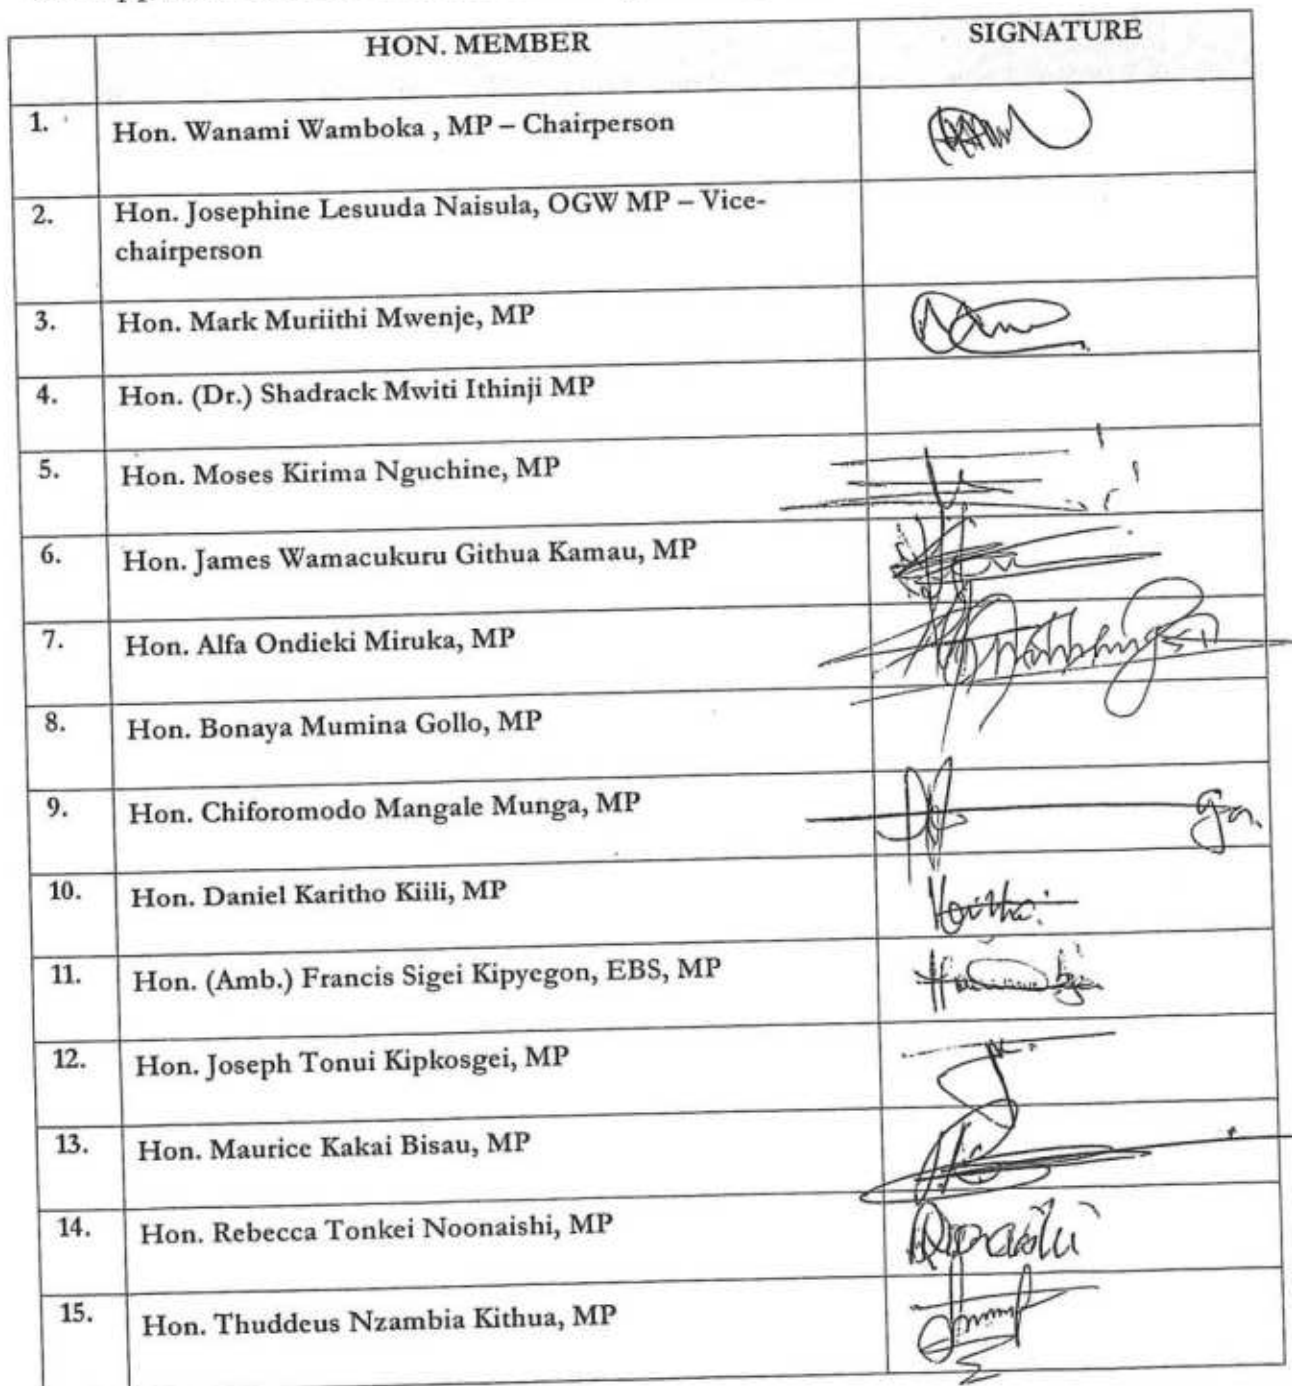 HON. MEMBER SIGNATURE
1. Hon. Wanami Wamboka , MP – Chairperson
2. Hon. Josephine Lesuuda Naisula, OGW MP – Vice-
chairperson
3. Hon. Mark Muriithi Mwenje, MP
4. Hon. (Dr.) Shadrack Mwiti Ithinji MP
5. Hon. Moses Kirima Nguchine, MP
6. Hon. James Wamacukuru Githua Kamau, MP
7. Hon. Alfa Ondieki Miruka, MP
8. Hon. Bonaya Mumina Gollo, MP
9. Hon. Chiforomodo Mangale Munga, MP
10. Hon. Daniel Karitho Kiili, MP
11. Hon. (Amb.) Francis Sigei Kipyegon, EBS, MP
12. Hon. Joseph Tonui Kipkosgei, MP
13. Hon. Maurice Kakai Bisau, MP
14. Hon. Rebecca Tonkei Noonaishi, MP
15. Hon. Thuddeus Nzambia Kithua, MP